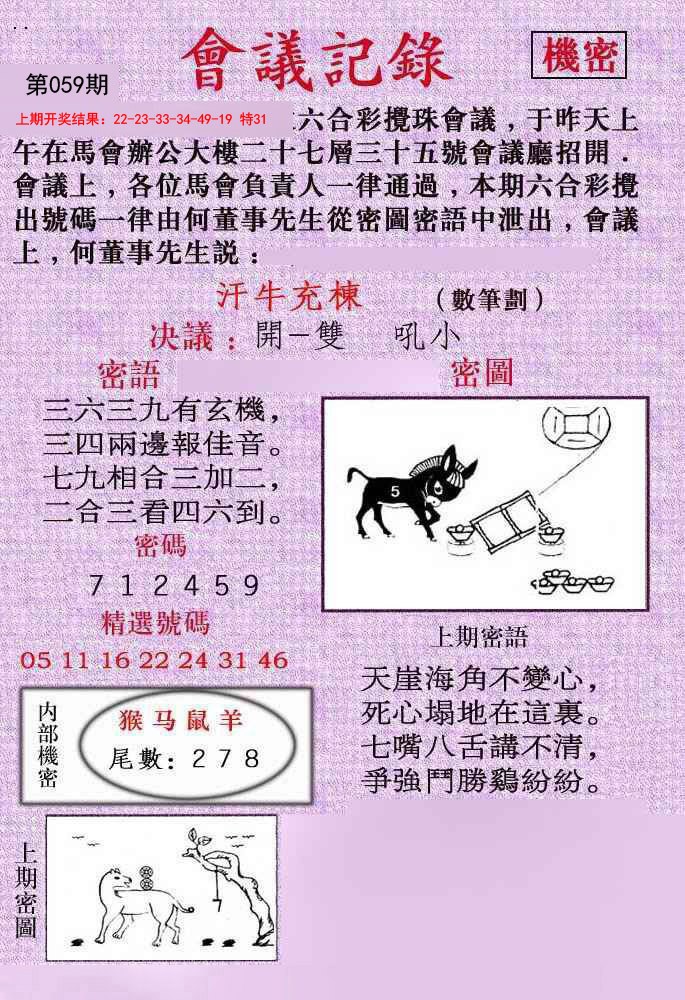 會議記錄
機密
第059期
上期开奖结果：22-23-33-34-49-19 特31
六合彩攪珠會議，于昨天上
午在馬會辦公大樓二十七層三十五號會議廳招開．
會議上，各位馬會負責人一律通過，本期六合彩攪
出號碼一律由何董事先生從密圖密語中泄出，會議
上，何董事先生説：
汗牛充棟 （數筆劃）
决議：開－雙 吼小
密語
三六三九有玄機，
三四兩邊報佳音。
七九相合三加二，
二合三看四六到。
密碼
7 1 2 4 5 9
精選號碼
05 11 16 22 24 31 46
密圖
5
内部機密
猴马鼠羊
尾數：2 7 8
上期密語
天崖海角不變心，
死心塌地在這裏。
七嘴八舌講不清，
爭強鬥勝鷄紛紛。
上期密圖
7